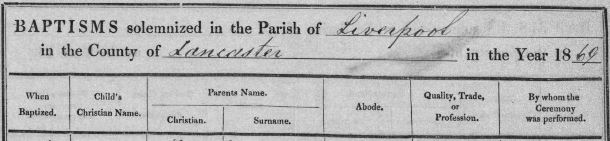 BAPTISMS solemnized in the Parish of Liverpool
in the County of Lancaster in the Year 1869
When Baptized. Child's Christian Name. Parents Name. Abode. Quality, Trade, or Profession. By whom the Ceremony was performed.
Christian. Surname.